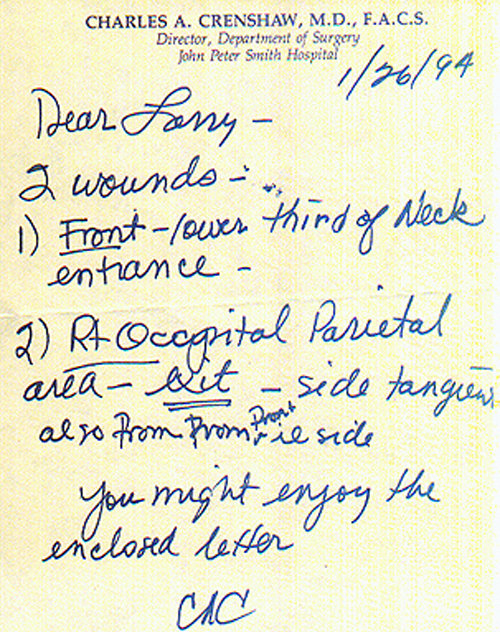 CHARLES A. CRENSHAW, M.D., F.A.C.S.
Director, Department of Surgery
John Peter Smith Hospital
1/26/94
Dear Larry -
2 wounds -
1) Front - lower third of Neck
entrance -
2) Rt Occipital Parietal
area - exit - side
also From From Front ie side
You might enjoy the
enclosed letter
CAC